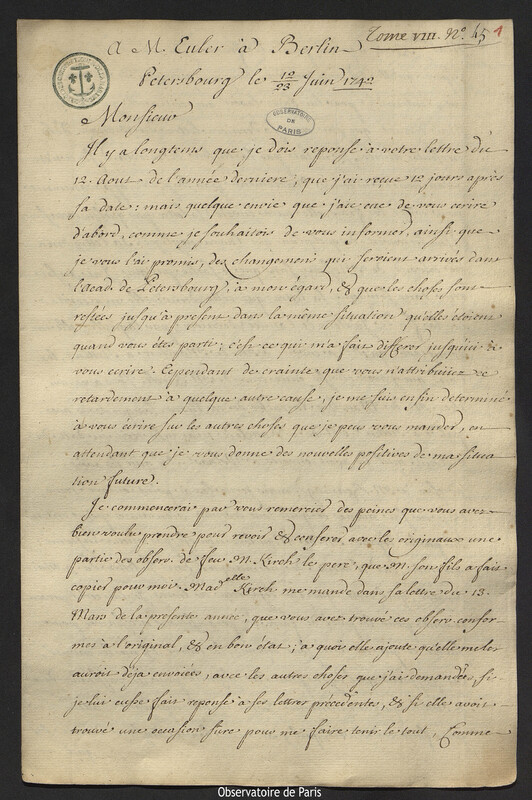 Tome VIII. Nº. 45 1
A M. Euler à Berlin
Petersbourg le 12/23 Juin 1742
OBSERVATOIRE DE PARIS
Monsieur
Il y a longtems que je dois reponse à votre lettre du
12. Aout de l'année derniere, que j'ai reçue 12 jours après
sa date: mais quelque envie que j'aie eue de vous ecrire
d'abord, comme je souhaitois de vous informer, ainsi que
je vous l'ai promis, des changemens qui seroient arrivés dans
l'Acad. de Petersbourg, à mon egard, & que les choses sont
restées jusqu'à present dans la même situation qu'elles etoient
quand vous êtes parti; c'est ce qui m'a fait differer jusqu'ici de
vous ecrire. Cependant de crainte que vous n'attribuiiez ce
retardement à quelque autre cause, je me suis enfin determiné
à vous écrire sur les autres choses que je peus vous mander, en
attendant que je vous donne des nouvelles positives de ma situa
tion future.
Je commencerai par vous remercier des peines que vous avez
bien voulu prendre pour revoir & conferer avec les originaux une
partie des observ. de feu M. Kirch le pere, que M. son fils a fait
copier pour moi. Mad.elle Kirch me mande dans sa lettre du 13.
Mars de la presente année, que vous avez trouvé ces observ. confor
mes à l'original, & en bon état; à quoi elle ajoute qu'elle me les
auroit deja envoiées, avec les autres choses que j'ai demandées, si
je lui eusse fait reponse à ses lettres précedentes, & si elle avoit
trouvé une occasion sure pour me faire tenir le tout. Comme
Observatoire de Paris